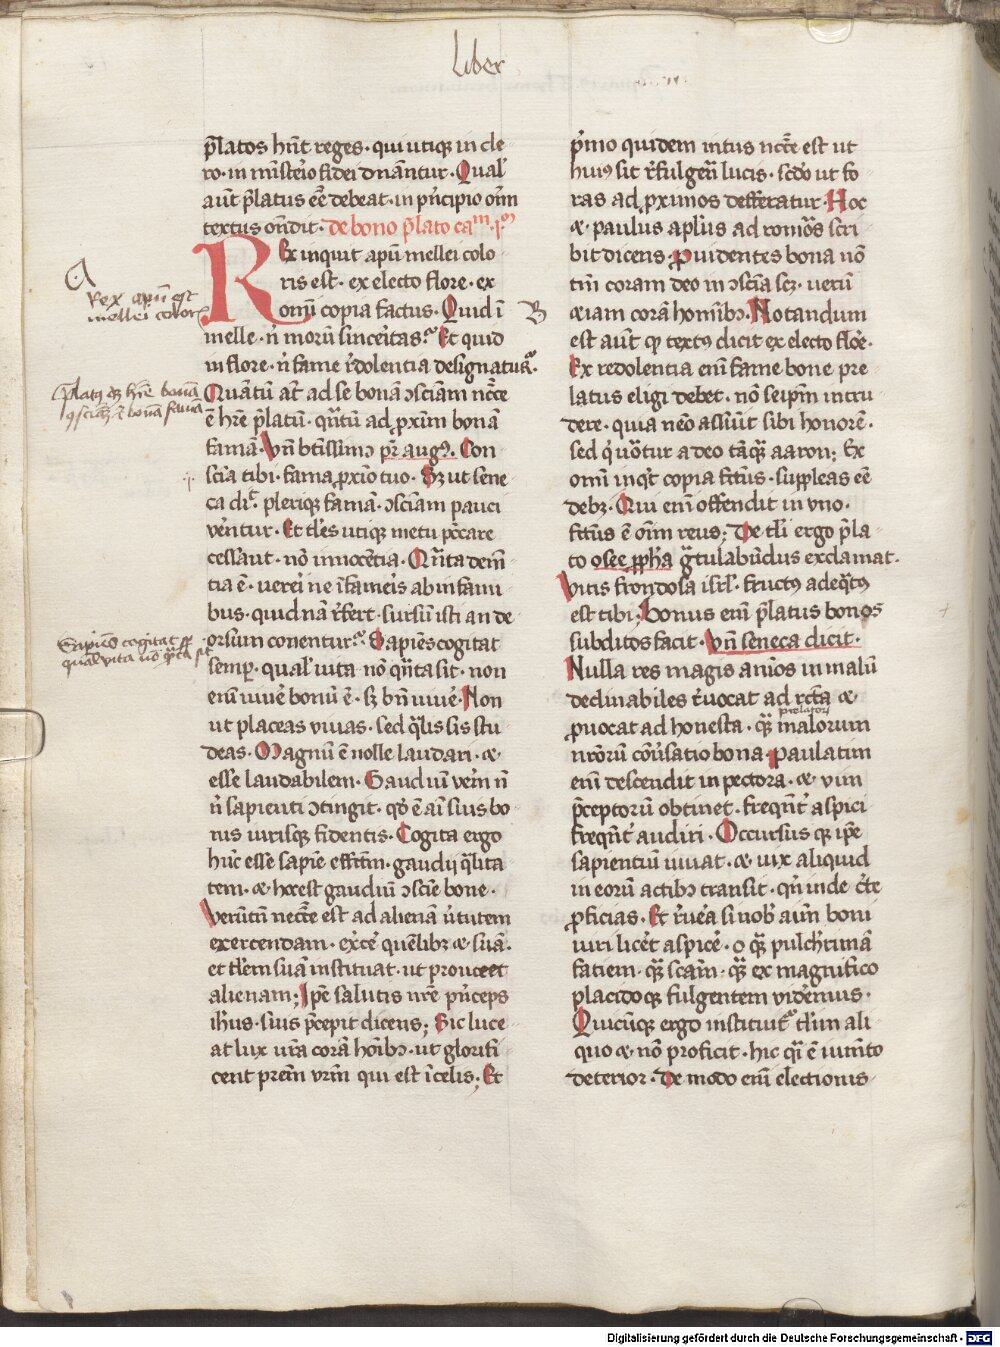 liber
p̄latos hn̄t reges · qui utiqꝫ in cle
ro · in mīsteͥo fidei dn̄antur · Qual'
aūt p̄latus eē debeat · in pͥncipio om̄
textus on̄dit · de bono p̄lato ca^m · p^m
Rex inquit apum̄ mellei colo
ris est · ex electo flore · ex
omī copia factus · Quid ī
melle · nͥ morū sinceͥitas? Et quid
in flore · nͥ fame rͤdolentia designatur?
Quātū at̄ ad se bonā ↄsciam ncc̄e
ē hr̄e p̄latū · qn̄tū ad ꝓximͫ bonā
famā · Vn̄ bt̄issimꝰ pr̄ augꝰ · Con
scīa tibi · fama ꝓxīo tuo · Sꝫ ut sene
ca di^c · pleriqꝫ famā · ↄsciam pauci
veͤntur · Et tl'es utiqꝫ metu pc̄care
cessant · nō innocētia · Qn̄ta dem̄
tia ē · uereͥi ne īfameͥis ab infami
bus · quid nā rͤfert · sursū isti an de
orsum conentur? Sapiēs cogitat
semp̲ · qual' uita nō qn̄ta sit · non
enī uiueͤ bonū ē · sꝫ bn̄ uiueͤ · Non
ut placeas viuas · sed qͣlis sis stu
deas · Magnū ē nolle laudari · ⁊
esse laudabilem · Gaudiū ver̄m nō
nͥ sapienti ↄtingit · qͦ ē aī suis bo
nis uirisqꝫ fidentis · Cogita ergo
hūc esse sapīe effc̄m · gaudij qͣlita
tem · ⁊ hoc est gaudiū ↄscīe bone ·
Verūtn̄ necc̄e est ad alienā uͥtutem
exercendam · exc̄eͤ quēlibꝫ ⁊ suā ·
et tl'em suā instituat · ut prouocet
alienam; Ipē salutis nr̄e pͥnceps
ih̄us · suis p̄cepit dicens; Sic luce
at lux ur̄a corā hoībꝫ · ut glorifi
cent prem̄ vrm̄ qui est ī celis; Et
pͥmo quidem intus ncc̄e est ut
huiꝰ sit rͤfulgen̄ lucis · scd̄o ut fo
ras ad ꝓximos defferatur · Hoc
⁊ · paulus apl'us ad romōs scri
bit dicens · Puidentes bona nō
tm̄ coram deo in ↄscīa scꝫ · uerū
⁊iam corā homībꝫ · Notandum
est aūt qꝫ textꝰ dicit ex electo floͤe ·
Ex redolentia enī fame bone pre
latus eligi debet · nō seipm̄ intru
dere · quia nēo assūit sibi honorē ·
sed qͥ uōtur a deo tāqͣꝫ aaron; Ex
omī inqͥt copia fc̄us · suppleas eē
debꝫ · Qui enī offendit in vno ·
fc̄us ē oīm reus; De tl'i ergo p̄la
to osee ꝓph̄a gͣtulabūdus exclamat ·
Vitis frondosa isrl' · fructꝰ adeqͣtꝰ
est tibi; Bonus enī p̄latus bonos
subditos facit · Vn̄ seneca dicit ·
Nulla res magis anīos in malū
declinabiles rͤuocat ad rc̄ta ⁊
ꝓuocat ad honesta · qͣꝫ malorum
prelatorū
uirorū cōuͤsatio bona · Paulatim
enī descendit in pectora · ⁊ vim
p̄ceptorū obtinet · freqn̄t' aspici
freqn̄t' audiri · Occursus qꝫ ip̄e
sapientiū iuuat · ⁊ uix aliquid
in eorū actibꝫ transit · qn̄ inde c̄te
ꝓficias · Et rͤuēa si nob' aīm boni
uiri liceͤt aspiceͤ · o qͣꝫ pulchͤrimā
faciem · qͣꝫ scām · qͣꝫ ex magnifico
placidoqꝫ fulgentem videͤmus ·
Quicūqꝫ ergo instituitͬ tl'im ali
quo ⁊ nō proficit · hic qͣi ē iumēto
deterior · De modo enī electionis
A
Rex apū est
mellei coloris
B
p̄latꝰ dꝫ hr̄e bonā
ꝯsciaꝫ ⁊ bonā famā
Sapiēs cogitat sp̄
qual' vita nō qn̄ta sit
Digitalisierung gefördert durch die Deutsche Forschungsgemeinschaft - DFG